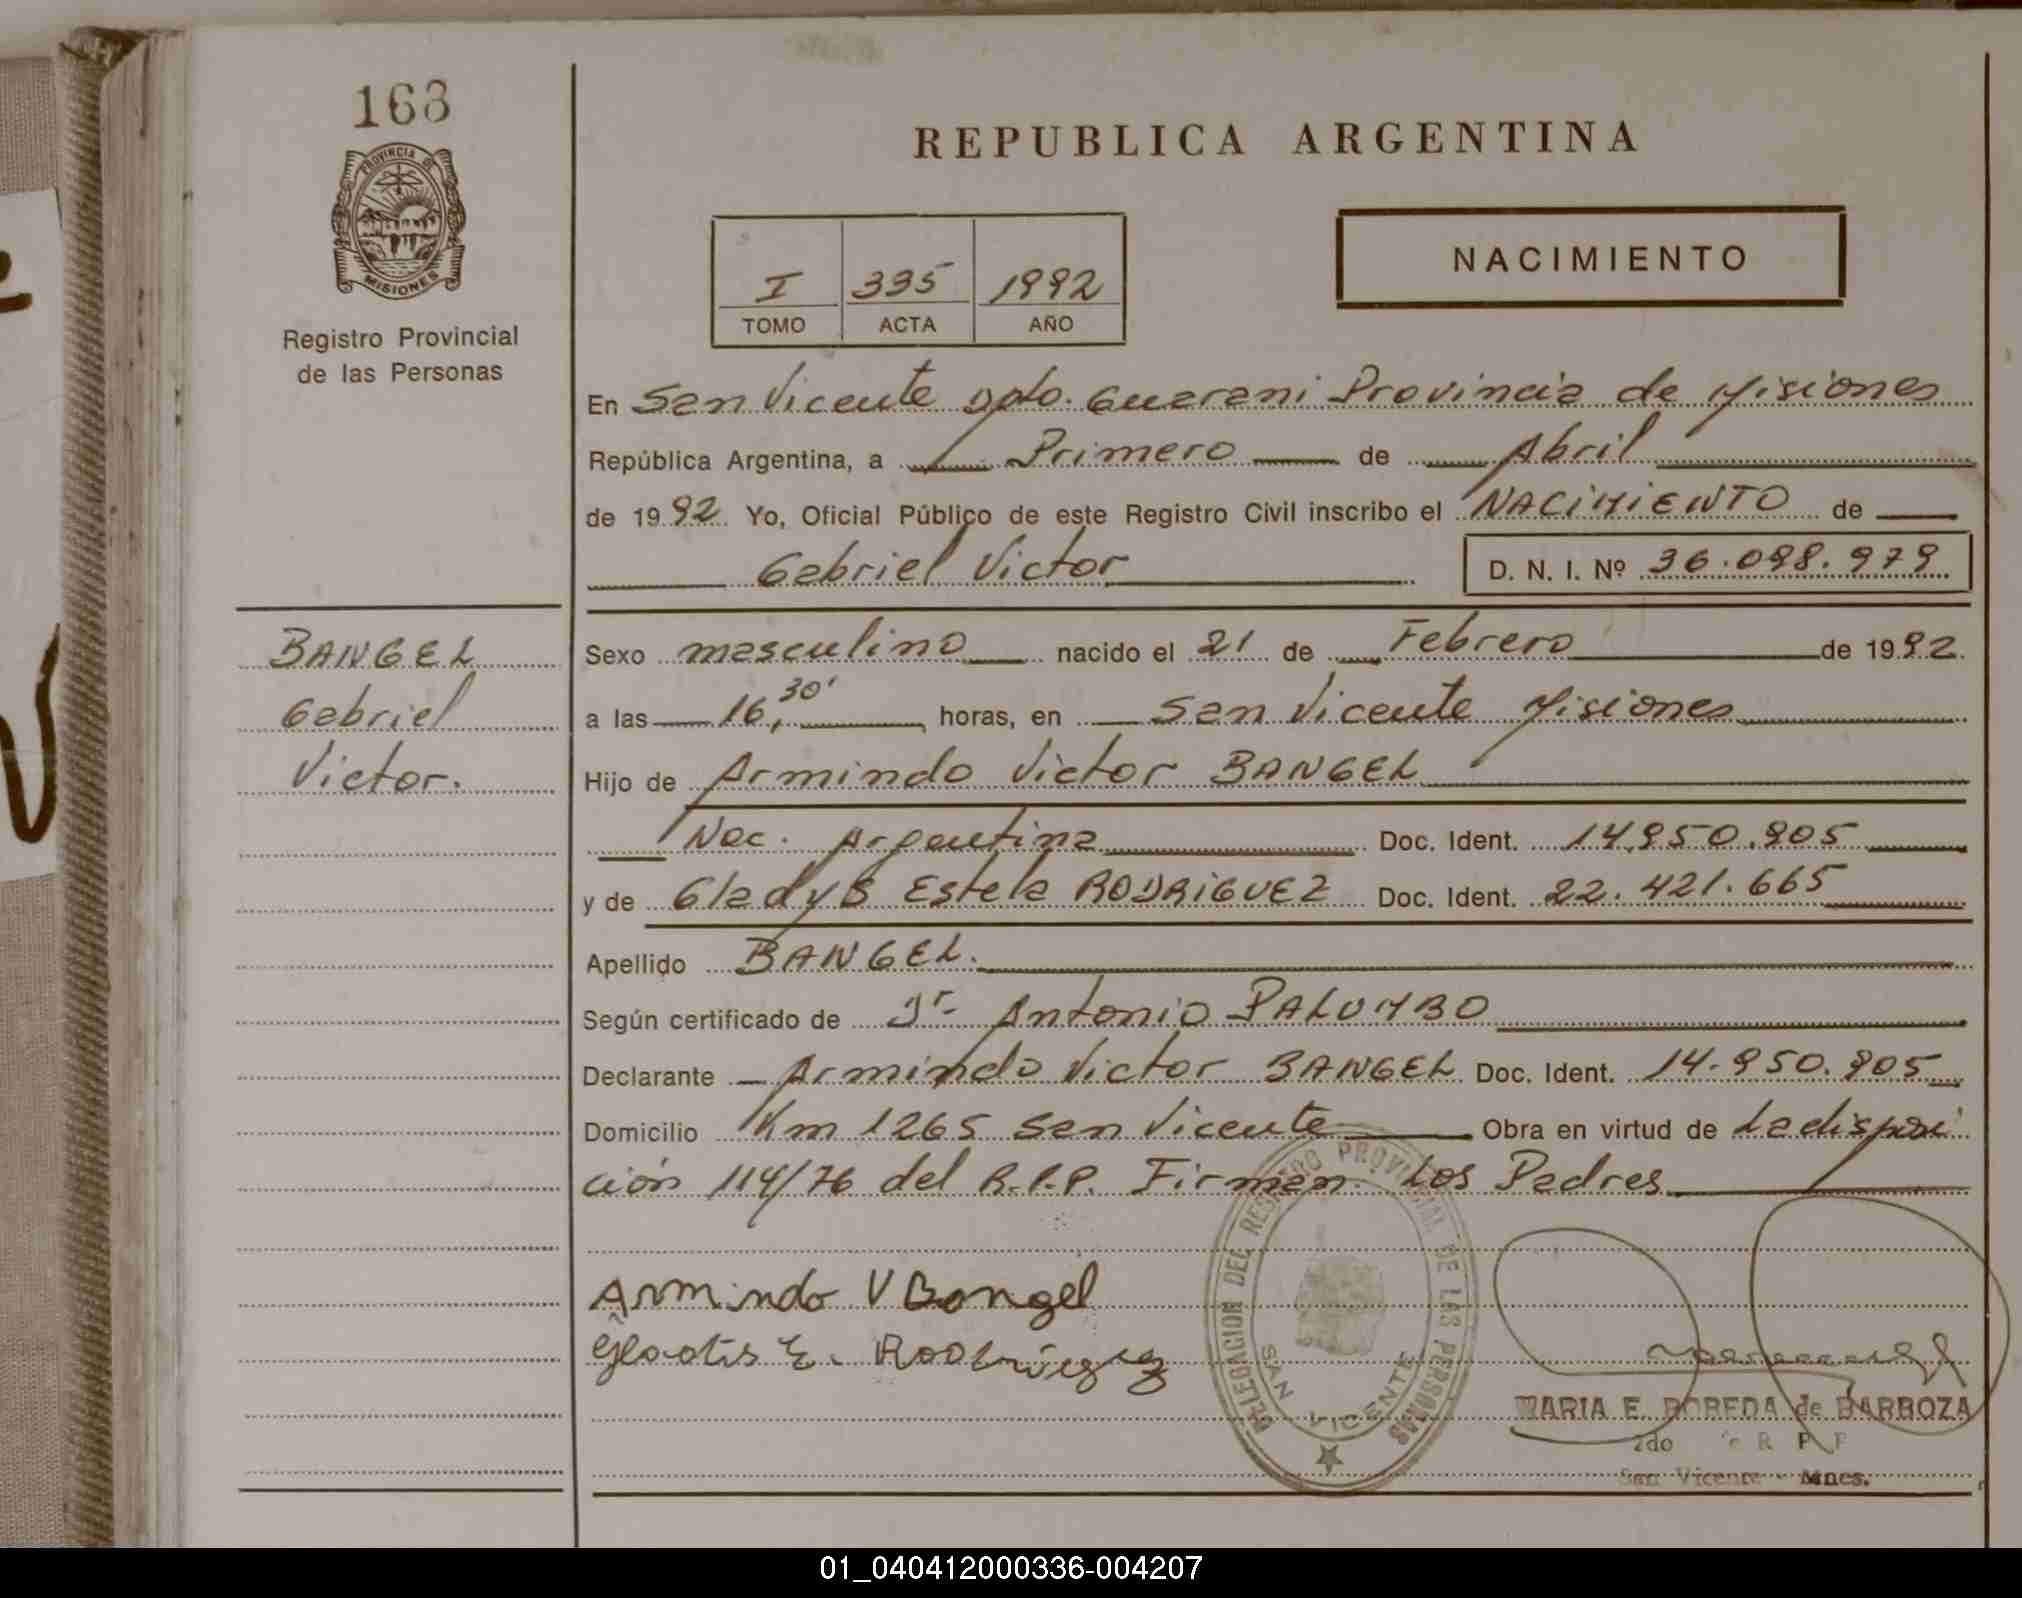 168
PROVINCIA DE
MISIONES
Registro Provincial
de las Personas
REPUBLICA ARGENTINA
I 335 1992
TOMO ACTA AÑO
NACIMIENTO
En San Vicente Dpto. Guarani Provincia de Misiones
República Argentina, a Primero de Abril
de 1992 Yo, Oficial Público de este Registro Civil inscribo el NACIMIENTO de
Gabriel Victor D. N. I. Nº 36.098.979
BANGEL
Gabriel
Victor.
Sexo masculino nacido el 21 de Febrero de 1992.
a las 16,30' horas, en San Vicente Misiones
Hijo de Armindo Victor BANGEL
Nac. Argentina Doc. Ident. 14.950.905
y de Gladys Estela RODRIGUEZ Doc. Ident. 22.421.665
Apellido BANGEL.
Según certificado de Dr Antonio PALUMBO
Declarante Armindo Victor BANGEL Doc. Ident. 14.950.905
Domicilio Km 1265 San Vicente Obra en virtud de La disposi
ción 114/76 del R.P.P. Firman Los Padres
Armindo V Bangel
Gladis E. Rodriguez
DELEGACION DEL REGISTRO PROVINCIAL DE LAS PERSONAS
SAN VICENTE
MARIA E. POREDA de BARBOZA
2do R P P
San Vicente - Mnes.
01_040412000336-004207